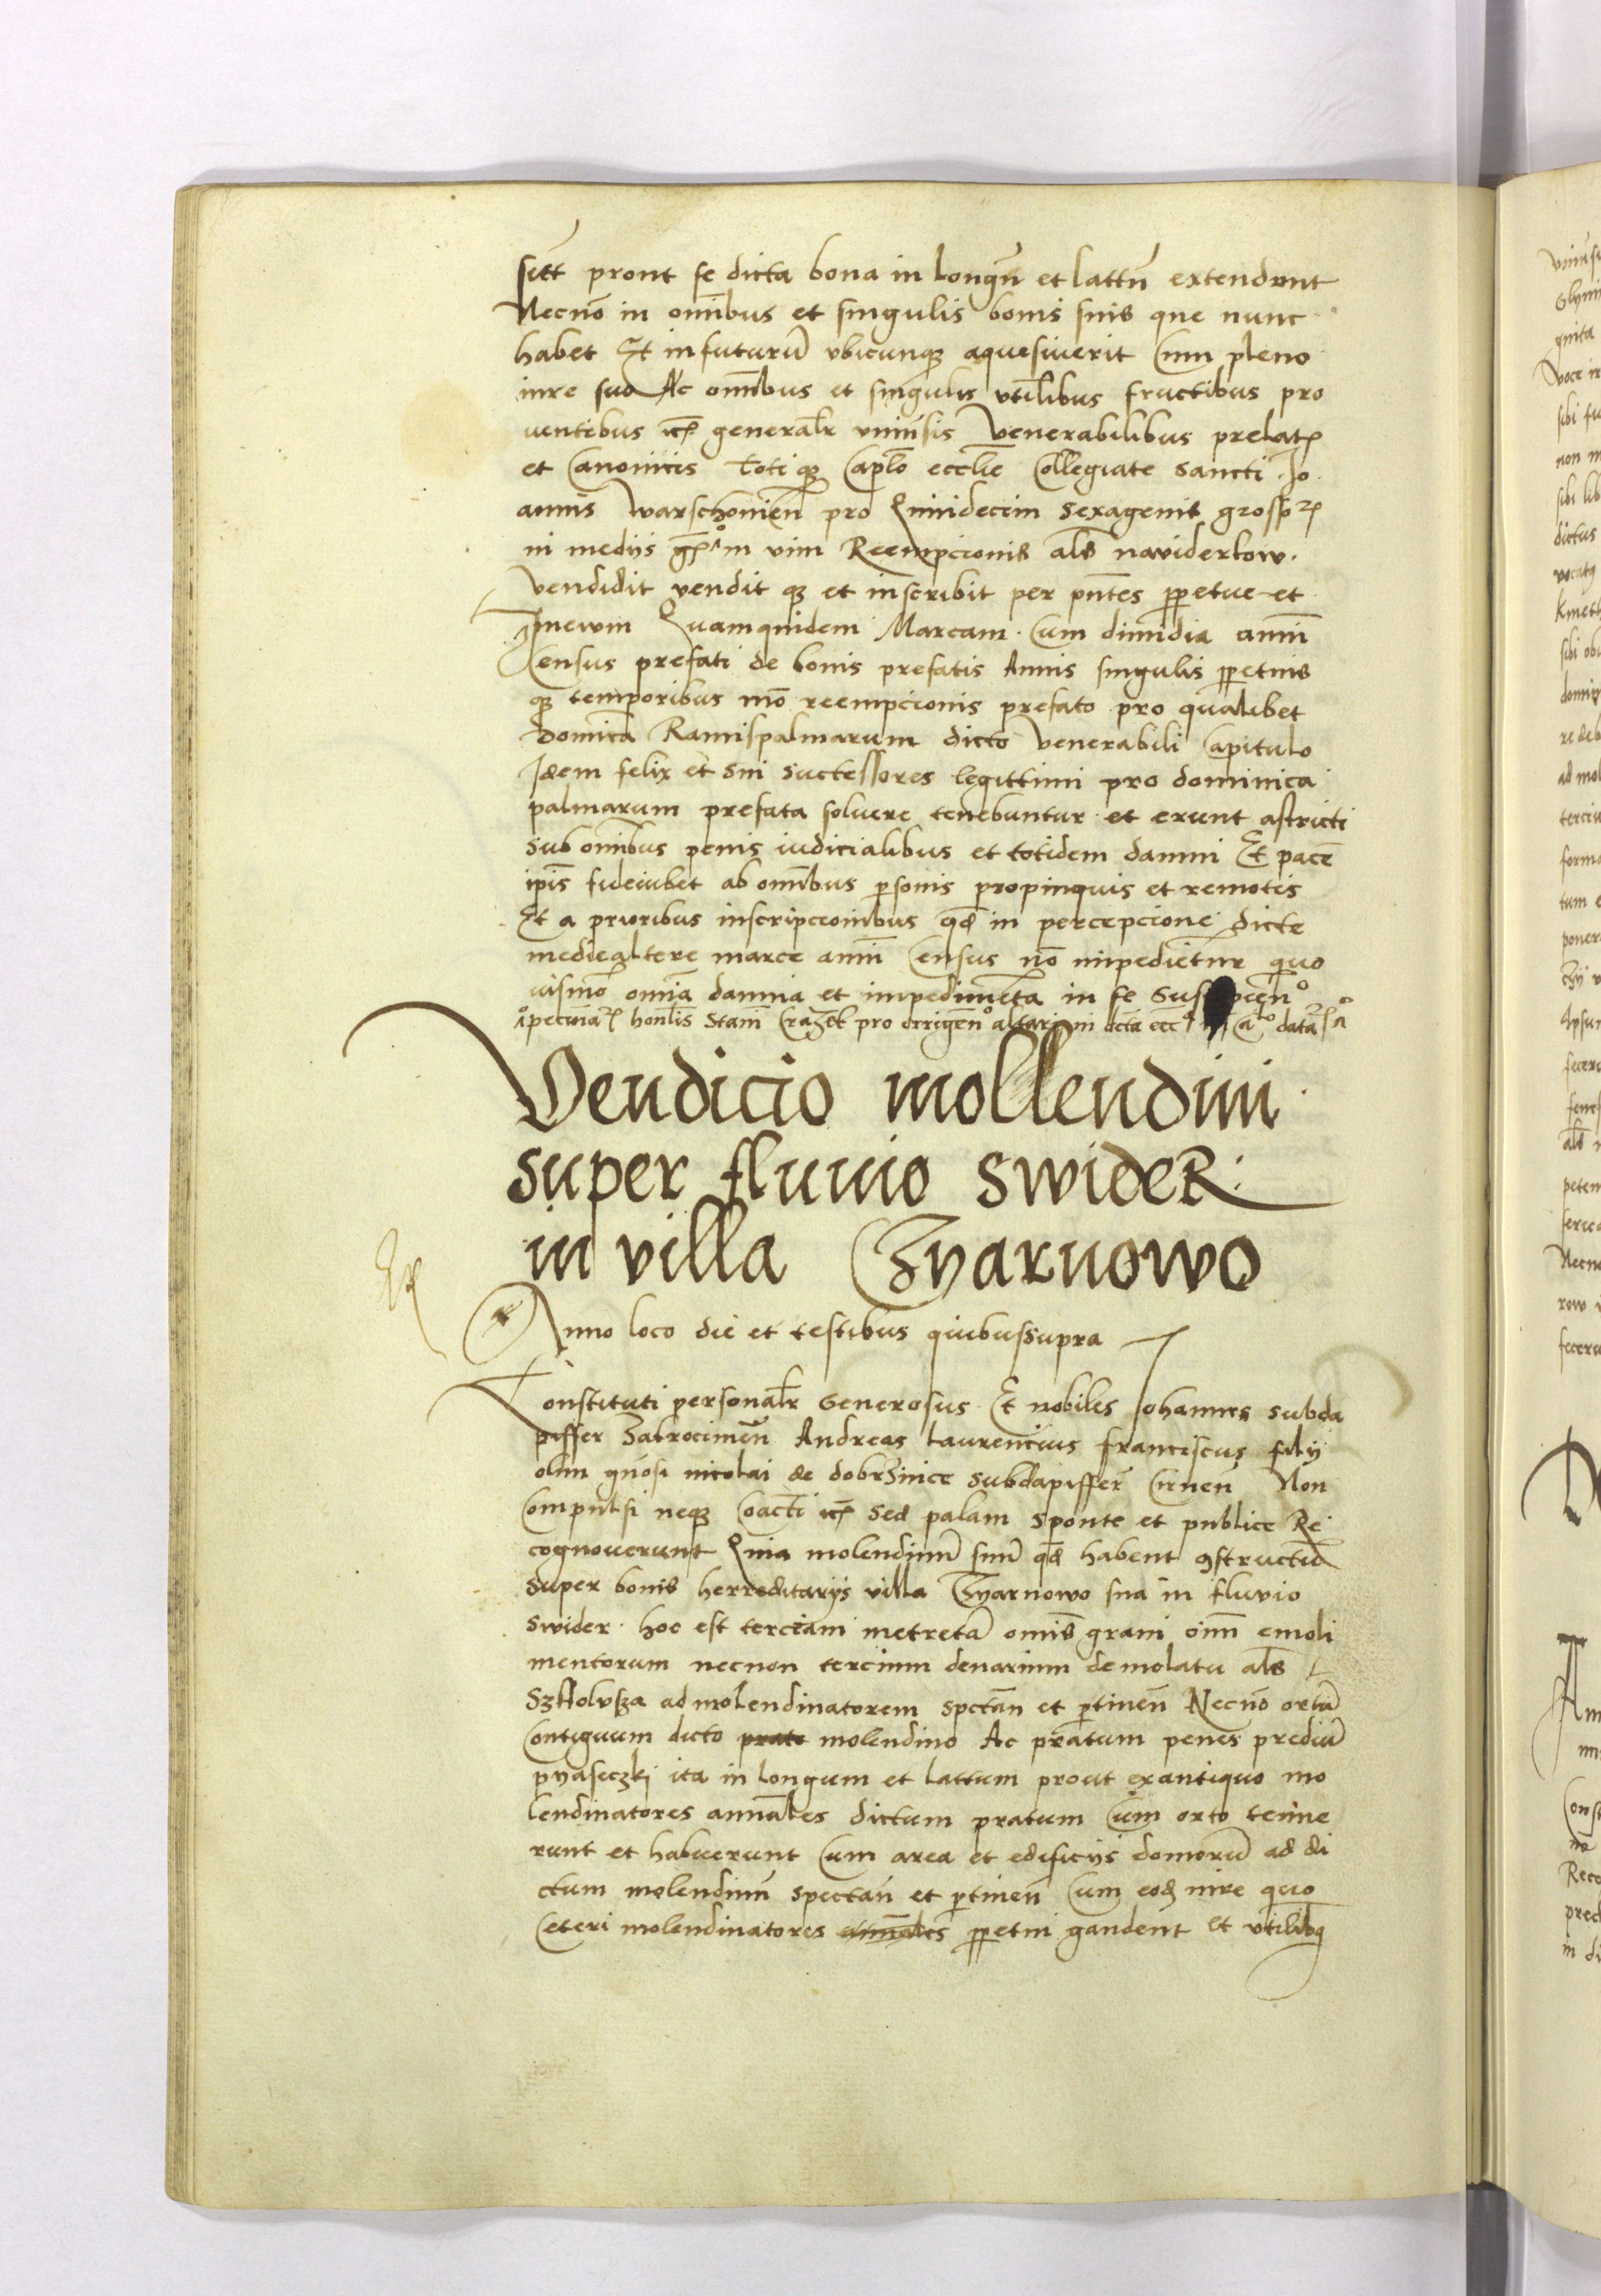 sitt prout se dicta bona in Longũ et lattũ extendunt
Necnõ in omĩbus et singulis bonis suis que nunc
habet Et in futurũ vbicunqz aquesiuerit Cum pleno
iure suo Ac omĩbus et singulis vtilibus fructibus pro
uentibus generalr vniũsis Venerabilibus prelat
et Canonicis toti qz Caplo ecclie Collegiate Sancti Jo
annis Warschouieñ pro Quindecim sexagenis grossor
in mediis in vim Reempcionis als naviderkow.
Vendidit vendit qz et inscribit per pntes ppetue et
Jneuum Quamquidem Marcam Cum dimidia anni
Census prefati de bonis prefatis Annis singulis ppetuis
qz temporibus mõ reempcionis prefato pro qualibet
Domica Ramispalmarum dicto Venerabili Capitulo
Jdem felix et sui successores legittimi pro dominica
palmarum prefata soluere tenebuntur et erunt astricti
sub omĩbus penis iudicialibus et totidem damni Et pacẽ
ipis fideiubet ab omĩbus psonis propinquis et remotis
Et a prioribus inscripcionibus qd in percepcione dicte
mediealtere marce anni Census nõ impedietur quo
uismõ omĩa damna et impedimẽta in se
pecunia honlis Stani pro errigen altari in dcta data
Vendicio mollendini
super fluuio SwideR
in villa Gyarnowo
Anno loco die et testibus quibussupra
Constituti personalr Generosus Et nobiles Johannes subda
piffer Zakrocimeñ Andreas Laurencius franciscus filij
olim gnosi nicolai de dobrzinice subdapifferi Cirneñ Non
Compulsi neqz Coacti Sed palam sponte et publice Re
cognouerunt Quia molendinũ suũ qd habent 9structũ
super bonis herreditariis villa Gyarnowo sua in fluvio
Swider hoc est terciam metretã omis grani oĩm emoli
mentorum necnon tercium denarium demolatu als
ad molendinatorem spctan et ptineñ Necnõ ortũ
Contiguum dicto prato molendino Ac pratum penes prediũ
pyaseczki ita in longum et lattum prout exantiquo mo
lendinatores annales dictum pratum Cum orto tenue
runt et habuerunt Cum area et edificiis domorũ ad di
ctum molendinũ spectañ et ptineñ Cum eod iure quo
Ceteri molendinatores annales ppetui gaudent Et vtilibq